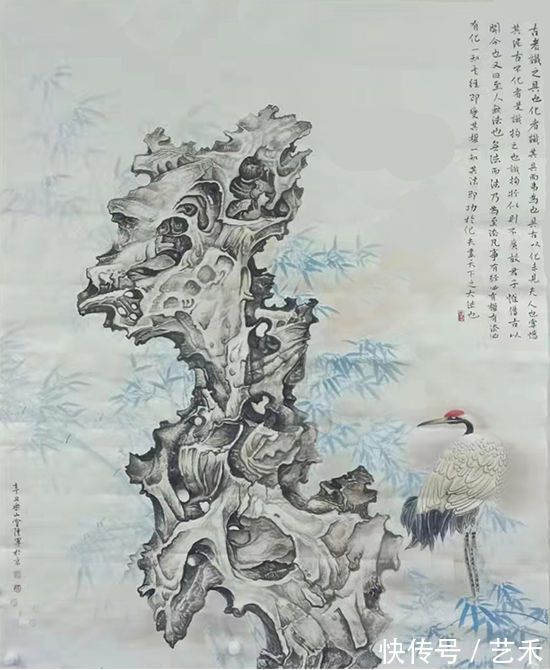 古者識之具也化者識其具而弗為也具古以化未見夫人也嘗憾
其泥古不化者是識拘之也識拘於似則不廣故君子惟借古以
開今也又曰至人無法也無法而法乃為至法凡事有經必有權有法必
有化一知其經即變其權一知其法即功於化夫畫天下之大法也
辛丑 山 於京
快传号／艺禾